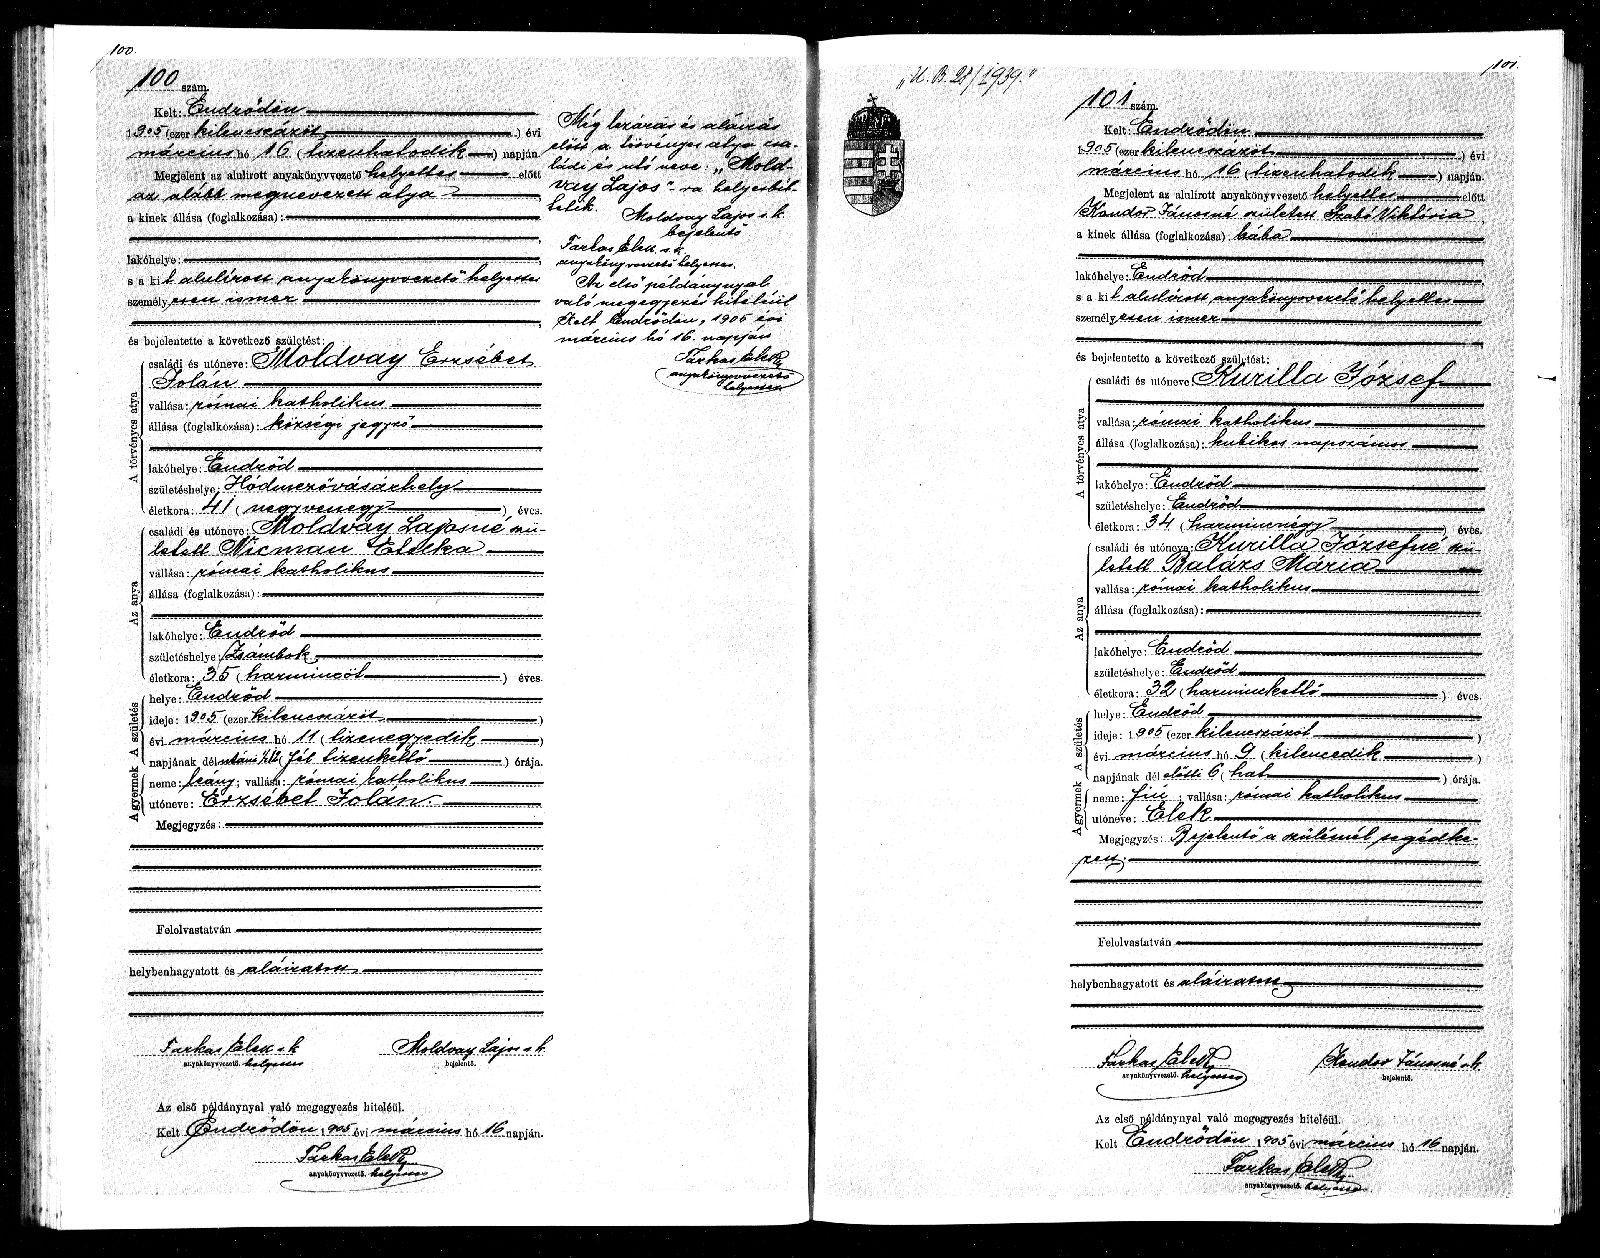 100.
100 szám.
Kelt: Endrődön
1905 (ezer kilencszázöt) évi
március hó 16 (tizenhatodik) napján.
Megjelent az alulirott anyakönyvvezető helyettes előtt
az alább megnevezett atya
a kinek állása (foglalkozása):
lakóhelye:
s a kit alulírott anyakönyvvezető helyettes
személyesen ismer
és bejelentette a következő születést:
A törvényes atya
családi és utóneve: Moldvay Erzsébet
Jolán
vallása: római katholikus
állása (foglalkozása): községi jegyző
lakóhelye: Endrőd
születéshelye: Hódmezővásárhely
életkora: 41 (negyvenegy) éves.
Az anya
családi és utóneve: Moldvay Lajosné szü-
letett Nicman Etelka
vallása: római katholikus
állása (foglalkozása):
lakóhelye: Endrőd
születéshelye: Zsámbok
életkora: 35 (harmincöt) éves.
A születés
helye: Endrőd
ideje: 1905 (ezer kilencszázöt)
évi március hó 11 (tizenegyedik)
napjának dél utáni ½12 (fél tizenkettő) órája.
A gyermek
neme: leány; vallása: római katholikus
utóneve: Erzsébet Jolán.
Megjegyzés:
Felolvastatván
helybenhagyatott és aláiratott
Farkas Elek s k Moldvay Lajos s. k.
anyakönyvvezető. helyettes bejelentő.
Az első példánynyal való megegyezés hiteléül.
Kelt Endrődön 1905 évi március hó 16 napján.
Farkas Elek
anyakönyvvezető. helyettes
Még lezárás és aláirás
előtt a törvényes atya csa-
ládi és utó neve: „Mold-
vay Lajos"-ra helyesbít-
tetik.
Moldvay Lajos s. k.
bejelentő
Farkas Elek s. k.
anyakönyvvezető helyettes.
Az első példánynyal
való megegyezés hiteléül
Kelt Endrődön, 1905 évi
március hó 16. napján
Farkas Elek
anyakönyvvezető
helyettes
101.
„U. B. 28/1939."
101 szám.
Kelt: Endrődön
1905 (ezer kilencszázöt) évi
március hó 16 (tizenhatodik) napján.
Megjelent az alulirott anyakönyvvezető helyettes előtt
Kondor Jánosné született Szabó Viktória
a kinek állása (foglalkozása): bába
lakóhelye: Endrőd
s a kit alulírott anyakönyvvezető helyettes
személyesen ismer
és bejelentette a következő születést:
A törvényes atya
családi és utóneve: Kurilla József
vallása: római katholikus
állása (foglalkozása): kubikos napszámos
lakóhelye: Endrőd
születéshelye: Endrőd
életkora: 34 (harmincnégy) éves.
Az anya
családi és utóneve: Kurilla Józsefné szü-
letett Balázs Mária
vallása: római katholikus
állása (foglalkozása):
lakóhelye: Endrőd
születéshelye: Endrőd
életkora: 32 (harminckettő) éves.
A születés
helye: Endrőd
ideje: 1905 (ezer kilencszázöt)
évi március hó 9 (kilencedik)
napjának dél előtti 6 (hat) órája.
A gyermek
neme: fiú; vallása: római katholikus
utóneve: Elek
Megjegyzés: Bejelentő a szülésnél segédke-
zett.
Felolvastatván
helybenhagyatott és aláiratott
Farkas Elek Kondor Jánosné s. k.
anyakönyvvezető. helyettes bejelentő.
Az első példánynyal való megegyezés hiteléül.
Kelt Endrődön 1905 évi március hó 16 napján.
Farkas Elek
anyakönyvvezető. helyettes